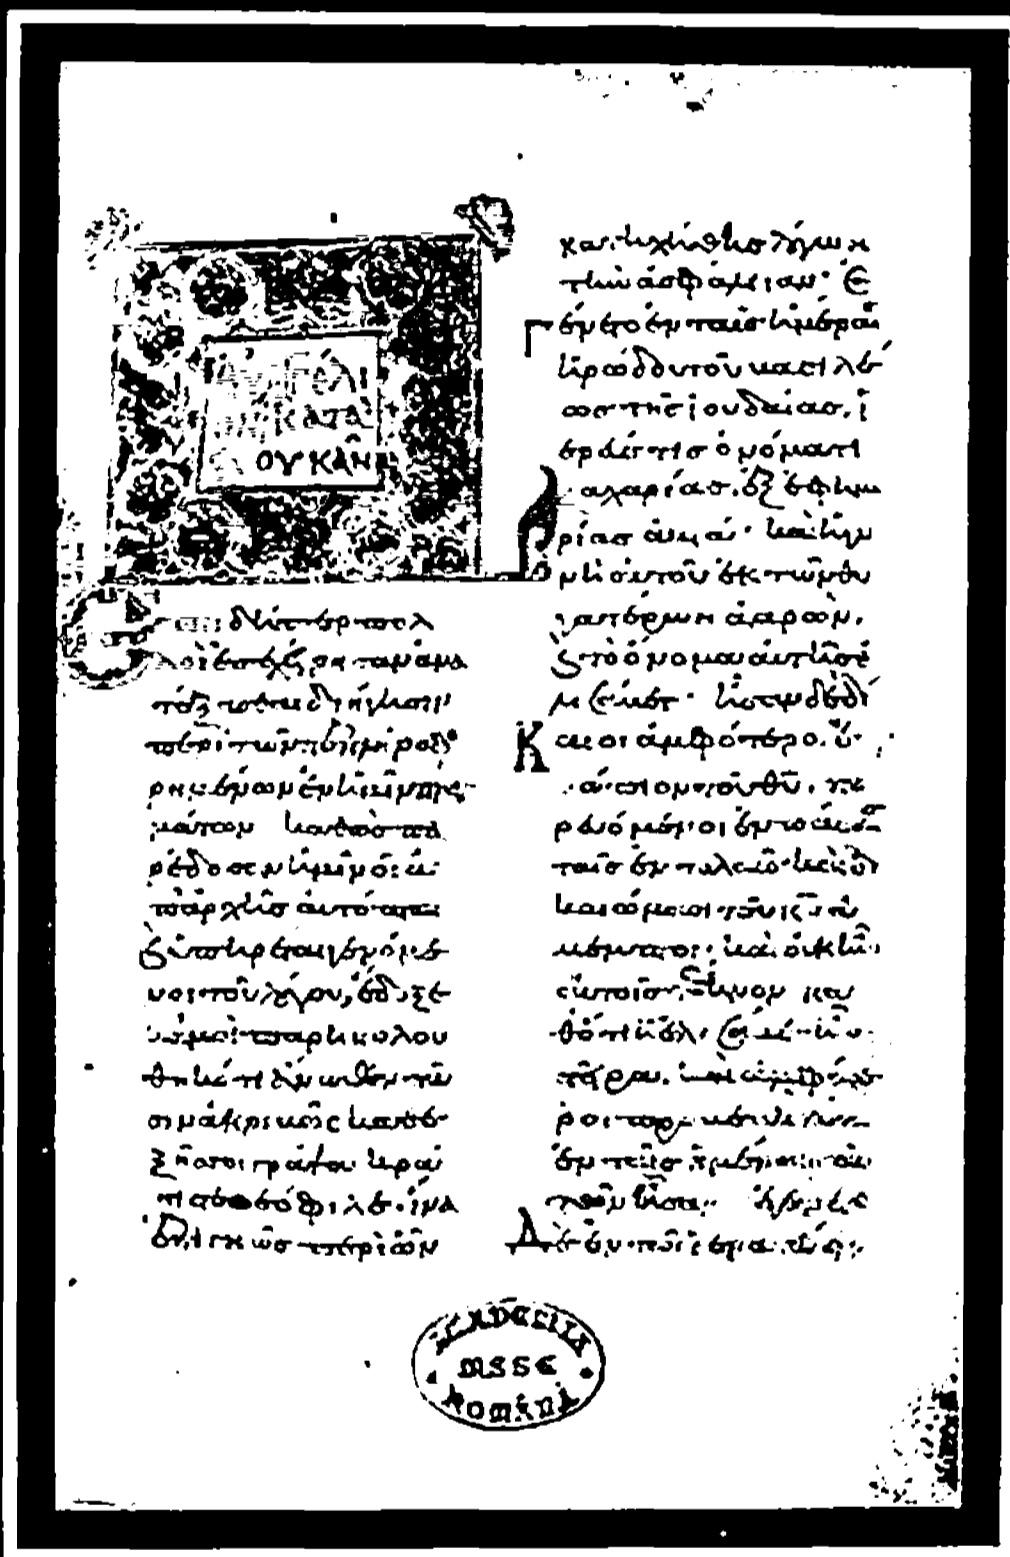 ΕΥΑΓΓΕΛΙ
ΚΑΤΑ
ΟΥΚΑΝ
Επειδήπερ πολ
λοὶ ἐπεχείρησαν ἀνα
τάξασθαι διήγησιν
περὶ τῶν πεπληροφο
ρημένων ἐν ἡμῖν πραγ
μάτων καθὼς πα
ρέδοσαν ἡμῖν οἱ ἀ
π ἀρχῆς αὐτόπται
καὶ ὑπηρέται γενόμε
νοι τοῦ λόγου, ἔδοξε
κἀμοὶ παρηκολου
θηκότι ἄνωθεν πᾶ
σιν ἀκριβῶς καθε
ξῆς σοι γράψαι κρά
τιστε θεόφιλε. ἵνα
ἐπιγνῶς περὶ ὧν
κατηχήθης λόγων
τὴν ἀσφάλειαν. Ἐ
γένετο ἐν ταῖς ἡμέραις
ἡρώδου τοῦ βασιλέ
ως τῆς ἰουδαίας, ἱ
ερεύς τις ὀνόματι
ζαχαρίας, ἐξ ἐφημε
ρίας ἀβιά. καὶ ἡ γυ
νὴ αὐτοῦ ἐκ τῶν θυ
γατέρων ἀαρών,
καὶ τὸ ὄνομα αὐτῆς ἐ
λισάβετ. ἦσαν δὲ δί
καιοι ἀμφότεροι ἐ
νώπιον τοῦ θυ, πο
ρευόμενοι ἐν πάσαις
ταῖς ἐντολαῖς καὶ
δικαιώμασι τοῦ κυ
ἄμεμπτοι. καὶ οὐκ ἦν
αὐτοῖς τέκνον κα
θότι ἡ ἐλισάβετ ἦν
στεῖρα, καὶ ἀμφότε
ροι προβεβηκότες
ἐν ταῖς ἡμέραις αὐ
τῶν ἦσαν. ἐγένετο
Δὲ ἐν τῷ ἱερατεύειν
ACADEMIA
MSSE
ROMÂNĂ